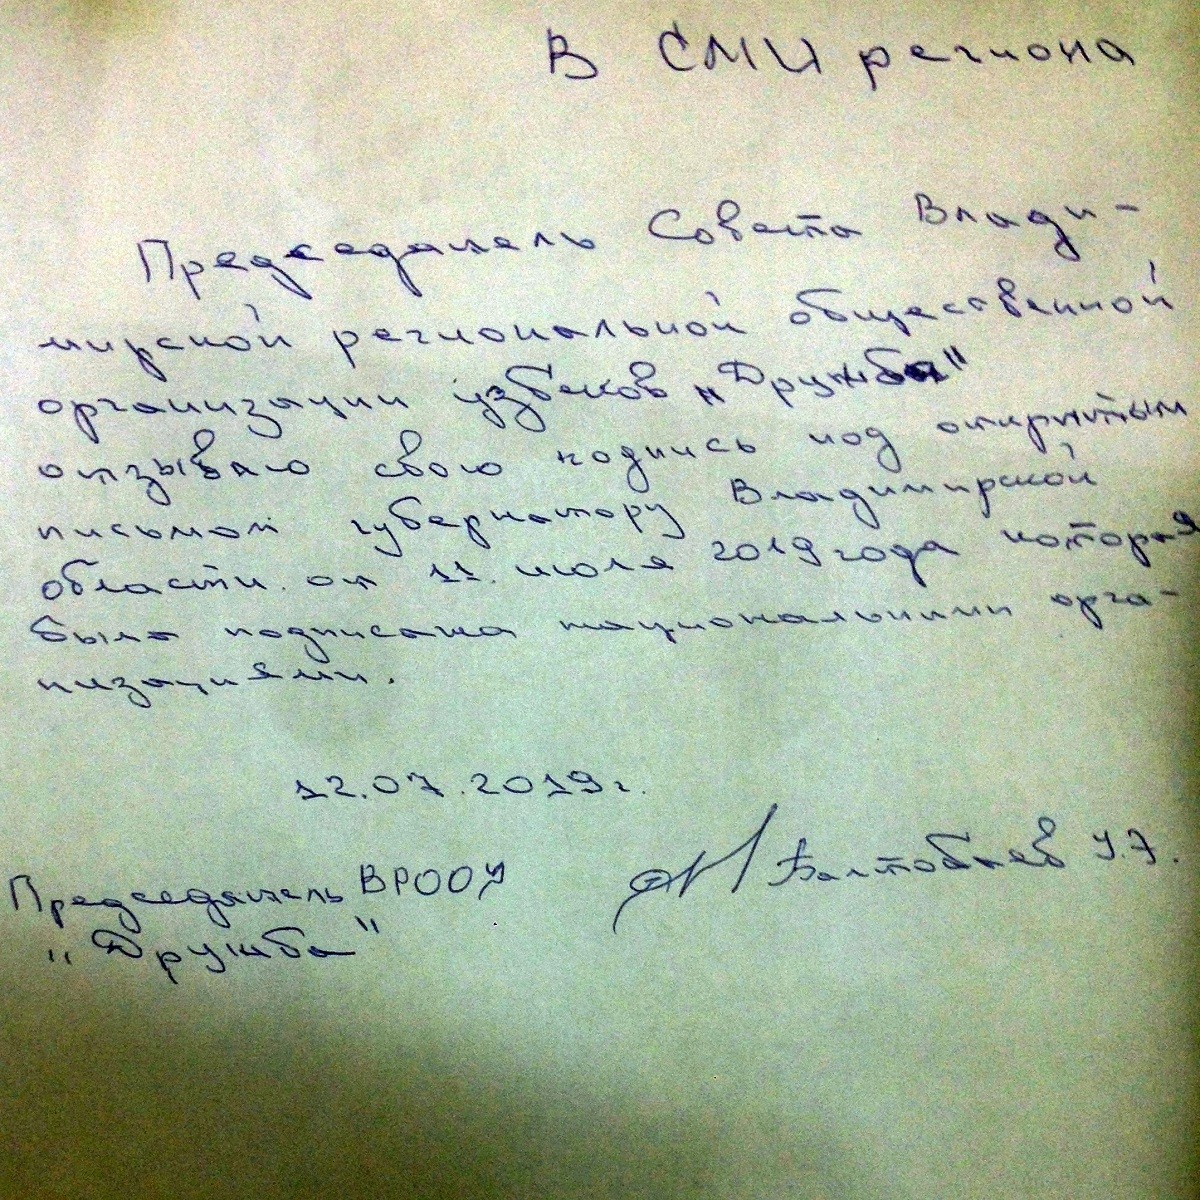 В СМИ региона
Председатель Совета Влади-
мирской региональной общественной
организации узбеков "Дружба"
отзываю свою подпись под открытым
письмом губернатору Владимирской
области. от 11. июля 2019 года которая
была подписана национальными орга-
низациями.
12.07.2019г.
Председатель ВРООУ
"Дружба"
Балтобаев У.Э.